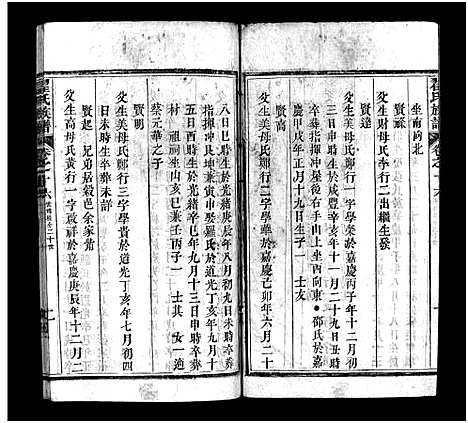 坐南向北
賢蘇
父生財母氏李行二出繼生發
父生美母氏鄭行一字學泰於嘉慶丙子年十二月初
三日申時生於咸豐辛亥年十一月二十九日丑時
卒葬指揮冲屋後右手山上坐西向東邵氏於嘉
慶甲戌年正月十九日生子一 士友
賢高
父生美母氏鄭行二字學華於嘉慶己卯年六月二十
八日巳時生於光緒庚辰年八月初九日未時卒葬
指揮冲艮坤兼寅申娶羅氏於道光丁亥年九月十
二日酉時生於光緒辛巳年九月十三日申時卒葬
村祖祠坐山亥巳兼壬丙子一 士其 女一適
蔡元華之子
賢明
父生美母氏鄭行三字學貴於道光丁亥年七月初四
日未時生卒葬未詳
賢起 兄弟居穀邑余家凿
父生高母氏黃行一字啟祥於嘉慶庚辰年十二月二